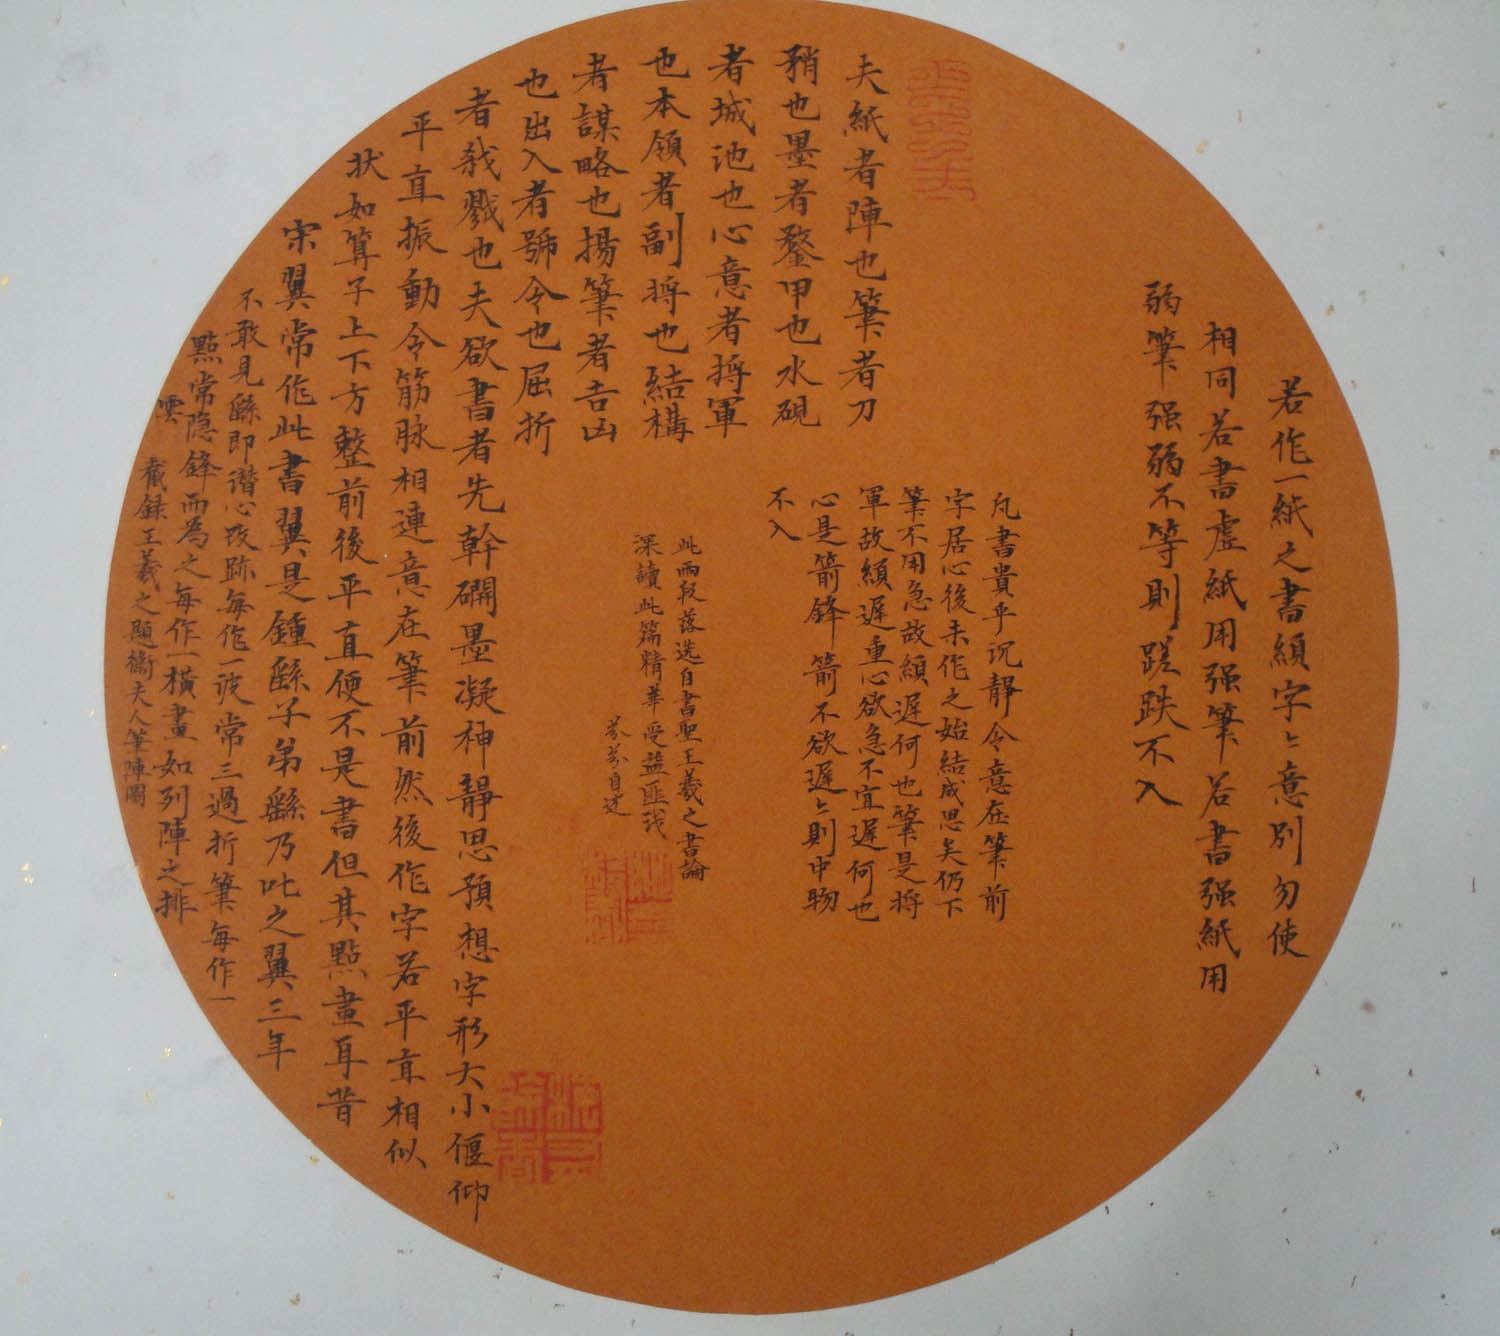 若作一紙之書須字〻意別勿使
相同若書虛紙用强筆若書强紙用
弱筆强弱不等則蹉跌不入
凡書貴乎沉靜令意在筆前
字居心後未作之始結成思矣仍下
筆不用急故須遲何也筆是將
軍故須遲重心欲急不宜遲何也
心是箭鋒箭不欲遲〻則中物
不入
此兩段落选自書聖王羲之書論
深讀此篇精華受益匪浅
夫紙者陣也筆者刀
矟也墨者鍪甲也水硯
者城池也心意者將軍
也本領者副將也結構
者謀略也揚筆者吉凶
也出入者號令也屈折
者殺戮也夫欲書者先幹硏墨凝神靜思預想字形大小偃仰
平直振動令筋脉相連意在筆前然後作字若平直相似
状如算子上下方整前後平直便不是書但其點畫耳昔
宋翼常作此書翼是鍾繇子弟繇乃叱之翼三年
不敢見繇即潛心改跡每作一波常三過折筆每作一
點常隐鋒而為之每作一横畫如列陣之排
雲
截録王羲之題衞夫人筆陣圖